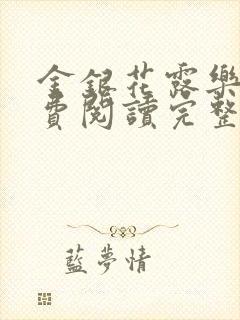 金銀花露樂
費閱讀完整
藍夢情